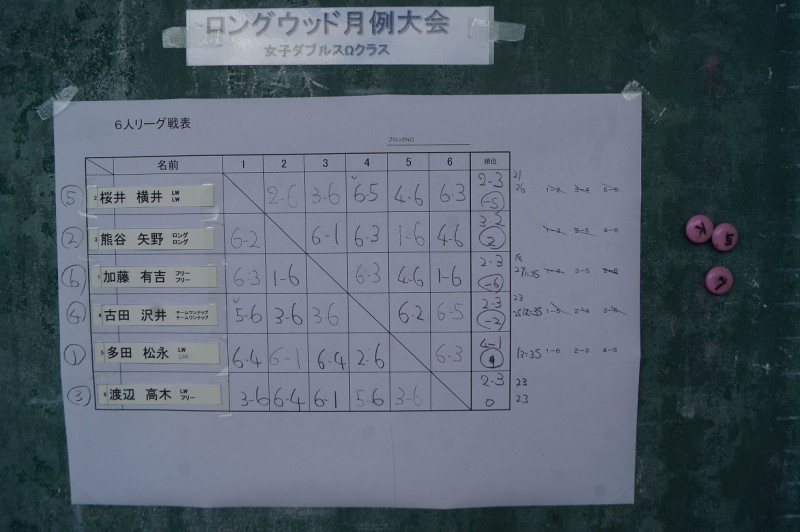 ロングウッド月例大会
女子ダブルスΩクラス
6人リーグ戦表
ブロックNO
名前 1 2 3 4 5 6 順位
⑤ 2 桜井 横井 LW LW 2-6 3-6 6-5 4-6 6-3 2-3 -5
② 3 熊谷 矢野 ロング ロング 6-2 6-1 6-3 1-6 4-6 3-2 2
⑥ 1 加藤 有吉 フリー フリー 6-3 1-6 6-3 4-6 1-6 2-3 -6
④ 4 古田 沢井 チームワンナップ チームワンナップ 5-6 3-6 3-6 6-2 6-5 2-3 -2
① 5 多田 松永 LW LW 6-4 6-1 6-4 2-6 6-3 4-1
③ 6 渡辺 高木 LW フリー 3-6 6-4 6-1 5-6 3-6 2-3 0
1-2 3-4 5-6
4-5
3-5
1-6 2-3 4-5
23
23